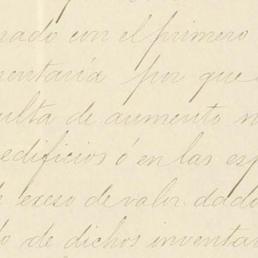 nado con el primero
mentaria por que
sulta de aumento
edificios ó en las esp
exceso de valor dado
de dichos inventar